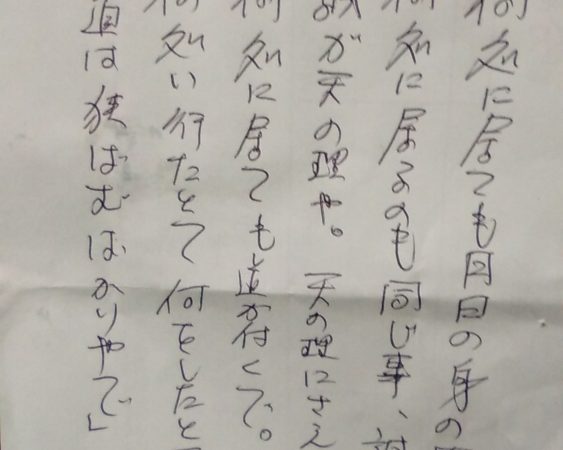 何処に居ても月日の身の
何処に居るのも同じ事、
が天の理や。天の理にさえ
何処に居ても道が付くで。
何処い行たとて何をしたと
道は狭ばむばかりやで」